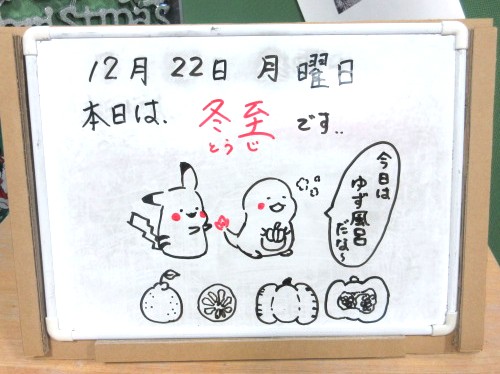 Christmas
12月 22日 月曜日
本日は、冬至です..
とうじ
今日は
ゆず風呂
だな〜